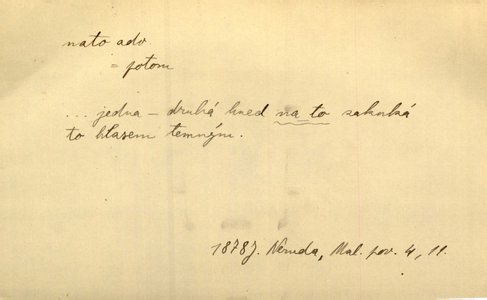 nato adv.
= potom
... jedna – druhá hned na to zakuká
to hlasem temným.
1878 J. Neruda, Mal. pov. 4, 11.